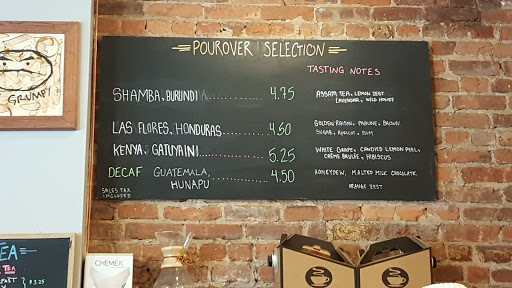 GRUMPY
POUROVER SELECTION
TASTING NOTES
SHAMBA, BURUNDI 4.75
ASSAM TEA, LEMON ZEST
LAVENDER, WILD HONEY
LAS FLORES, HONDURAS 4.60
GOLDEN RAISIN, PRALINE, BROWN
SUGAR, APRICOT, RUM
KENYA, GATUYAINI 5.25
WHITE GRAPE, CANDIED LEMON PEEL,
CRÈME BRULÉE, HIBISCUS
DECAF GUATEMALA, 4.50
HUNAPU
HONEYDEW, MALTED MILK CHOCOLATE
ORANGE ZEST
SALES TAX
INCLUDED
TEA
TEA
$3.25
CHEMEX